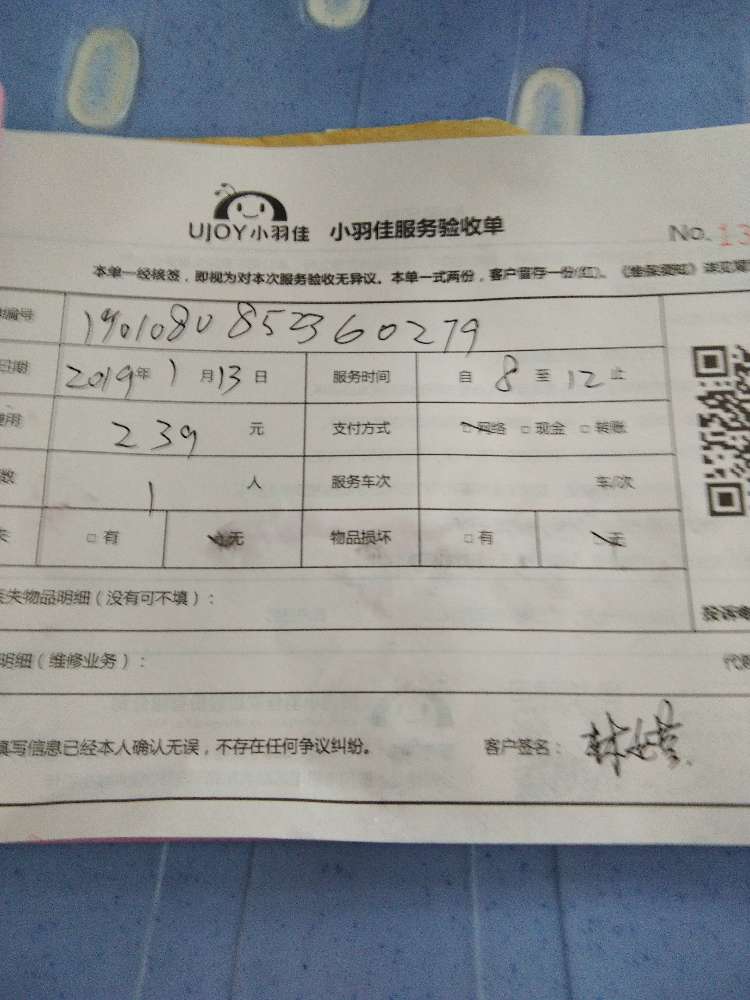 UJOY小羽佳 小羽佳服务验收单
No. 13
本单一经核签，即视为对本次服务验收无异议。本单一式两份，客户留存一份(红)。《维保须知》详见背
编号 1901080852360279
日期 2019年 1月13日 服务时间 自 8 至 12 止
费用 239 元 支付方式 网络 □ 现金 □ 转账
数 1 人 服务车次 车/次
失 □ 有 无 物品损坏 □ 有 无
丢失物品明细（没有可不填）：
投诉电
明细（维修业务）：
代购
填写信息已经本人确认无误，不存在任何争议纠纷。 客户签名：